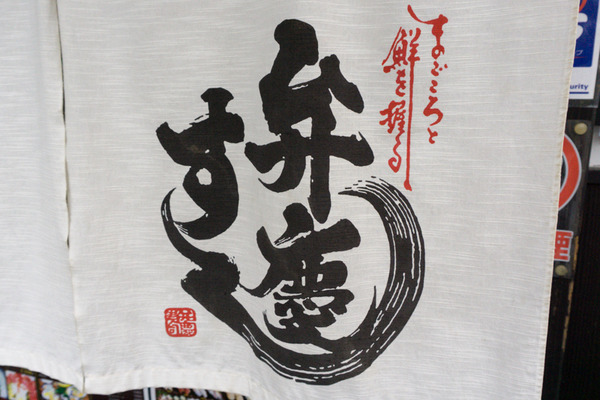 まごころと
鮮を握る
弁慶
すし
urity
煙